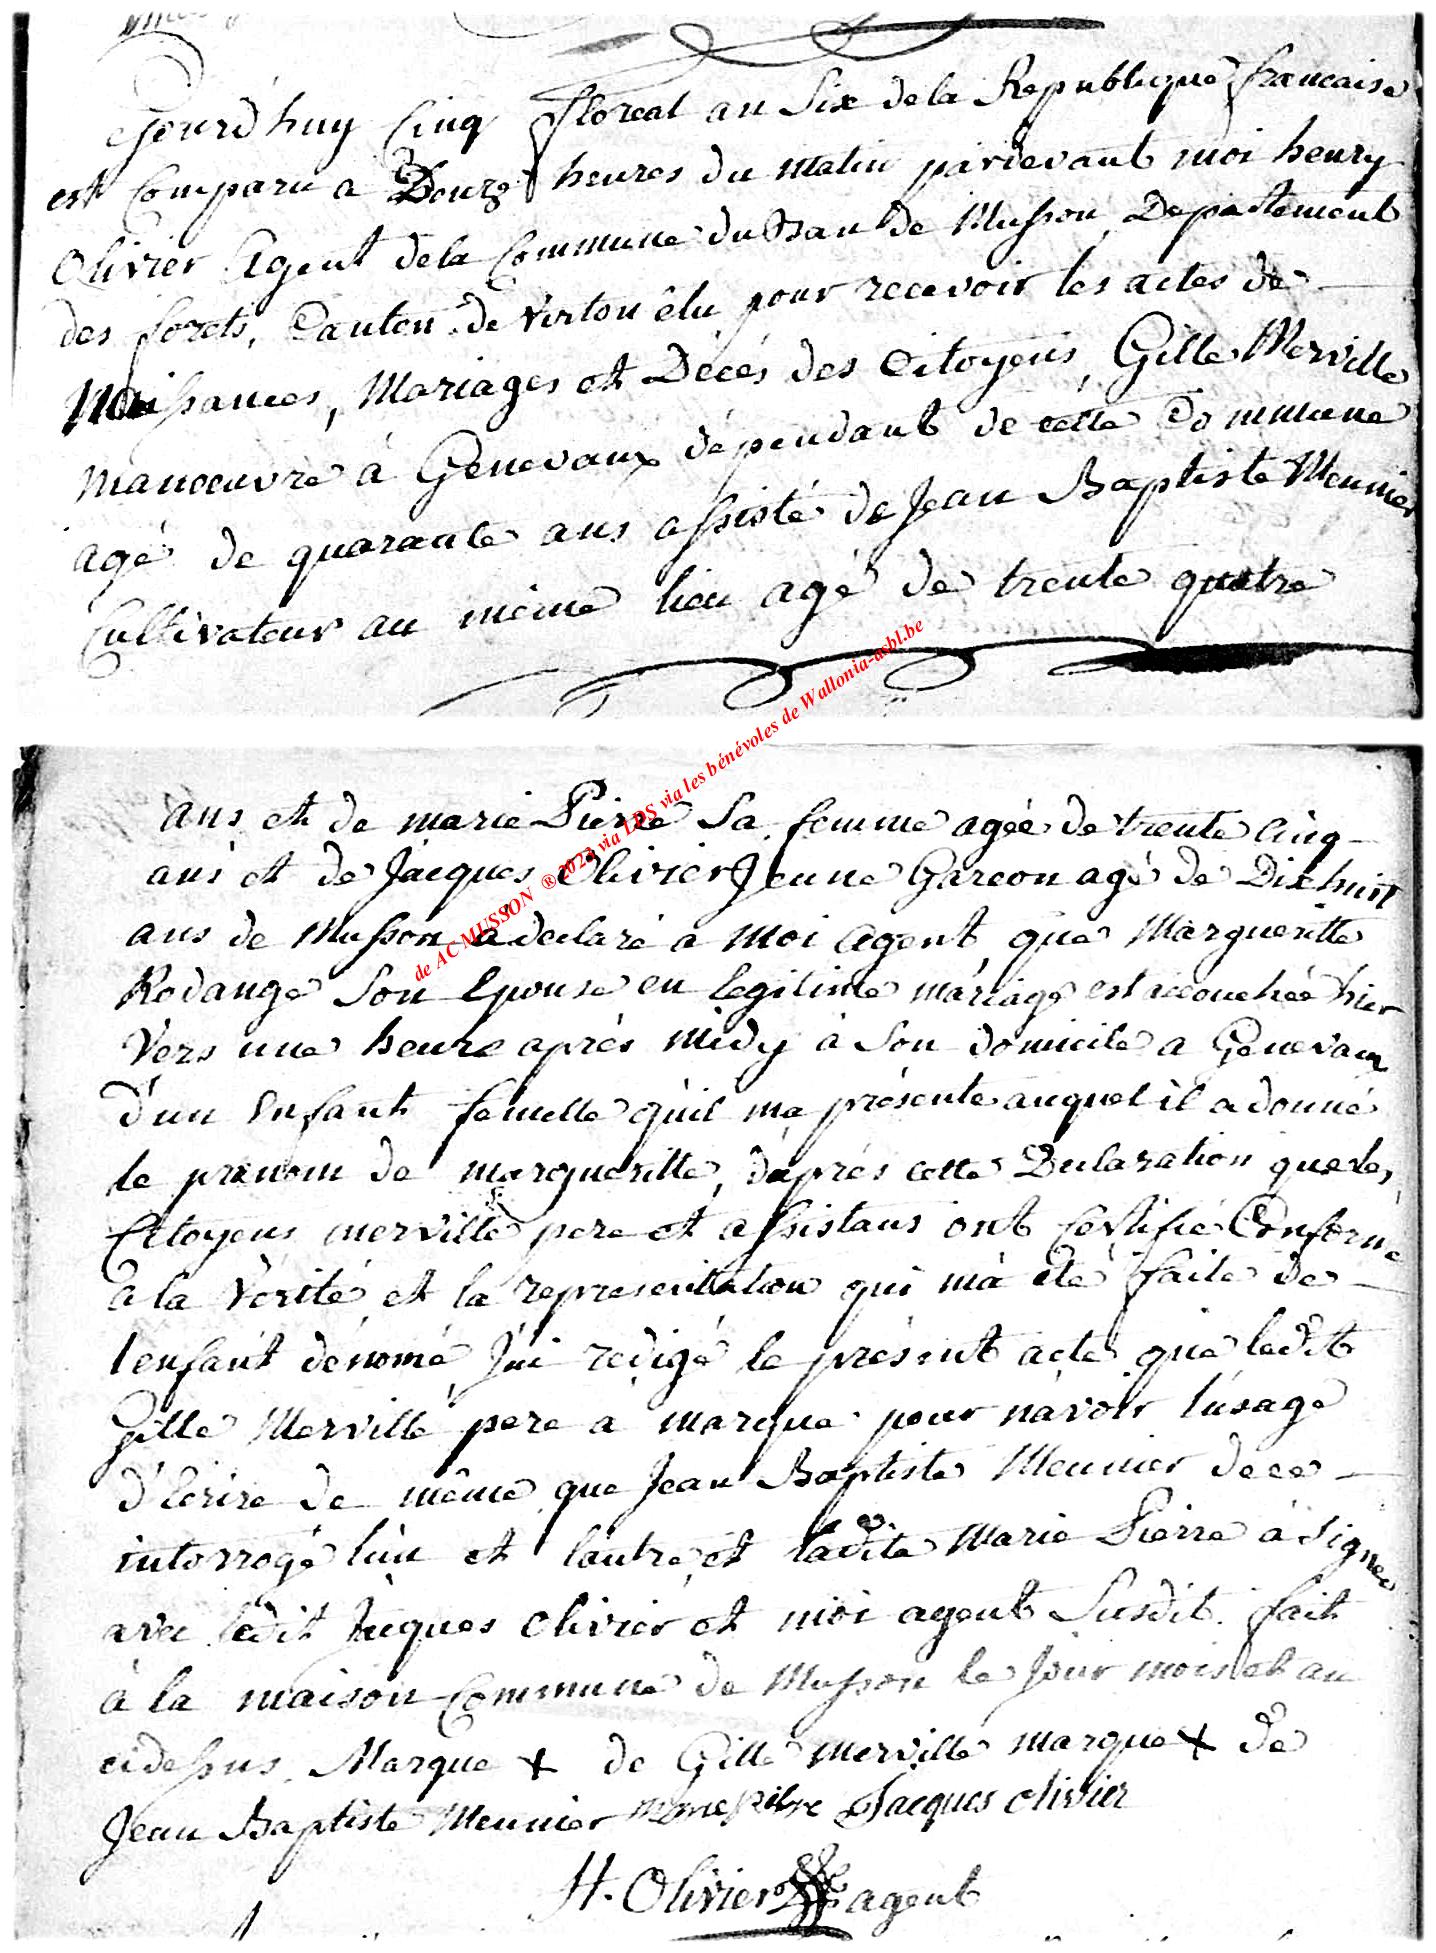 Jourd'huy Cinq floreal an Six de la Republique francaise
est Comparu a Douze heures du matin pardevant moi henry
Olivier Agent dela Commune du Ban de Musson, Departement
des forets, Canton de Virton élu pour recevoir les actes de
Naissances, Mariages et Décés des Citoyens, Gille Merville
manoeuvre à Genevaux dépendant de cette Commune
agé de quarante ans assisté de Jean Baptiste Meunier
Cultivateur au même lieu agé de trente quatre
ans et de marie Pierre Sa femme agée de trente cinq
ans et de Jacques Olivier Jeune Garcon agé de Dix huit
ans de Musson a declaré a moi Agent, que Margueritte
Rodange Son Epouse en legitime mariage est accouchée hier
Vers une heure aprés midy à Son domicile a Genevaux
d'un Enfant femelle qu'il ma présenté auquel il a donné
le prenom de margueritte, d'aprés cette Declaration que les
Citoyens merville pere et assistans ont Certifié Conforme
a la Vérité et la representation qui m'a été faite de
l'enfant dénomé, J'ai redigé le présent acte que ledit
Gille Merville pere à marqué pour n'avoir l'usage
d'Ecrire de même que Jean Baptiste Meunier de ce
interrogé l'un et l'autre, et ladite Marie Pierre à signee
avec ledit Jacques Olivier et moi agent Susdit. fait
à la maison Commune de Musson le Jour mois et an
cidessus. Marque + de Gille merville marque + de
Jean Baptiste Meunier Jacques olivier
H. Olivier agent
de AC MUSSON ® 2023 via LDS via les bénévoles de Wallonia-asbl.be